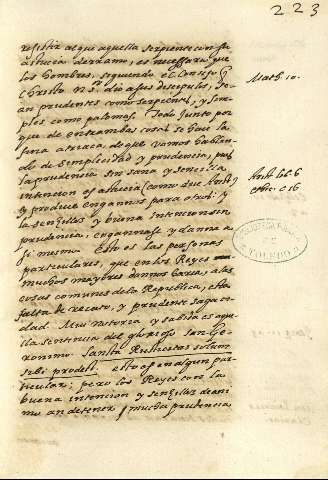 223
resistir al que aquella serpiente con su
astucia derramo, es necessario que
los hombres, siguiendo el Consejo q
Christo n.s. dio a sus discipulos, se-
an prudentes como serpientes, y sim-
ples como palomas. Todo junto por
que de entrambas cosas se haze la
fina atriaca, de que vamos hablan-
do de simplicidad y prudencia, pues
la prudencia sin sana y sencilla
intencion es astucia (como dice Arist.)
y produce engannos para otros: y
la senzillez y buena intencion sin
prudencia, engannase y danna a
si mesma. Esto es las personas
particulares, que en los Reyes
muchos mayores dannos harà, a las
cosas comunes de la Republica, esta
falta de recato, y prudente sagaci-
dad. Muy notoria y sabida es aque
lla sentencia del glorioso san Ge-
ronimo. Sancta Rusticitas solum
sibi prodest. esto es en algun par-
ticular; pero los Reyes con la
buena intencion y senzillez de ani-
mo an de tener mucha prudencia,
Math. 10.
Arist. lib. 6
ethic. c 16
BIBLIOTECA PUBLICA
DE
TOLEDO